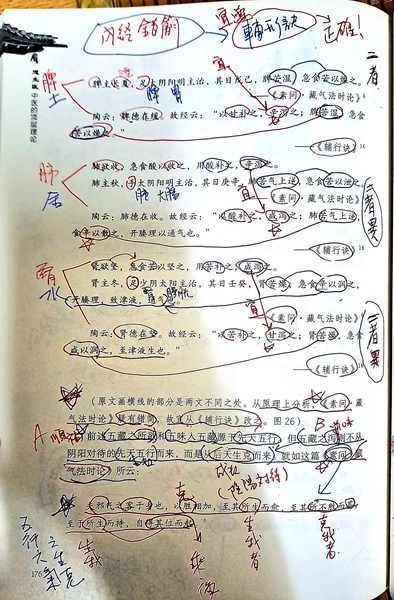 内经 错简 宜 辅行诀 正确!
二者
中医的顶层理论
脾 土
脾主长夏，足太阴阳明主治，其日戊己，脾苦湿，急食苦以燥之。
脾 胃
——《素问·藏气法时论》
陶云：脾德在缓。故经云：“以甘补之，辛泻之；脾苦湿，急食
苦以燥之。”
——《辅行诀》16
肺 金
肺欲收，急食酸以收之，用酸补之，辛泻之。
肺主秋，手太阴阳明主治，其日庚辛，肺苦气上逆，急食苦以泄之。
肺 大肠 宜
——《素问·藏气法时论》
陶云：肺德在收。故经云：“以酸补之，咸泻之；肺苦气上逆，
食辛以散之，开腠理以通气也。”
——《辅行诀》16
二者异
肾 水
肾欲坚，急食苦以坚之，用苦补之，咸泻之。
肾主冬，足少阴太阳主治，其日壬癸，肾苦燥，急食辛以润之，
开腠理，致津液，通气也。
宜
——《素问·藏气法时论》
陶云：肾德在坚。故经云：“以苦补之，甘泻之；肾苦燥，急食
咸以润之，至津液生也。”
——《辅行诀》16
二者异
（原文画横线的部分是两文不同之处。从原理上分析，《素问·藏
气法时论》疑有错简，故宜从《辅行诀》改之。图26）
A B
前述五藏之所欲和五味入五藏源于先天五行，但五藏之泻则不从
阴阳对待的先天五行而来，而是从后天生克而来，就如这篇《素问·藏
气法时论》所云：
(阴阳对待)
夫邪气之客于身也，以胜相加，至其所生而愈，至其所不胜而甚，
至于所生而持，自得其位而起。
生我 克 乘侮 生我者 克我者
五行 生克
176